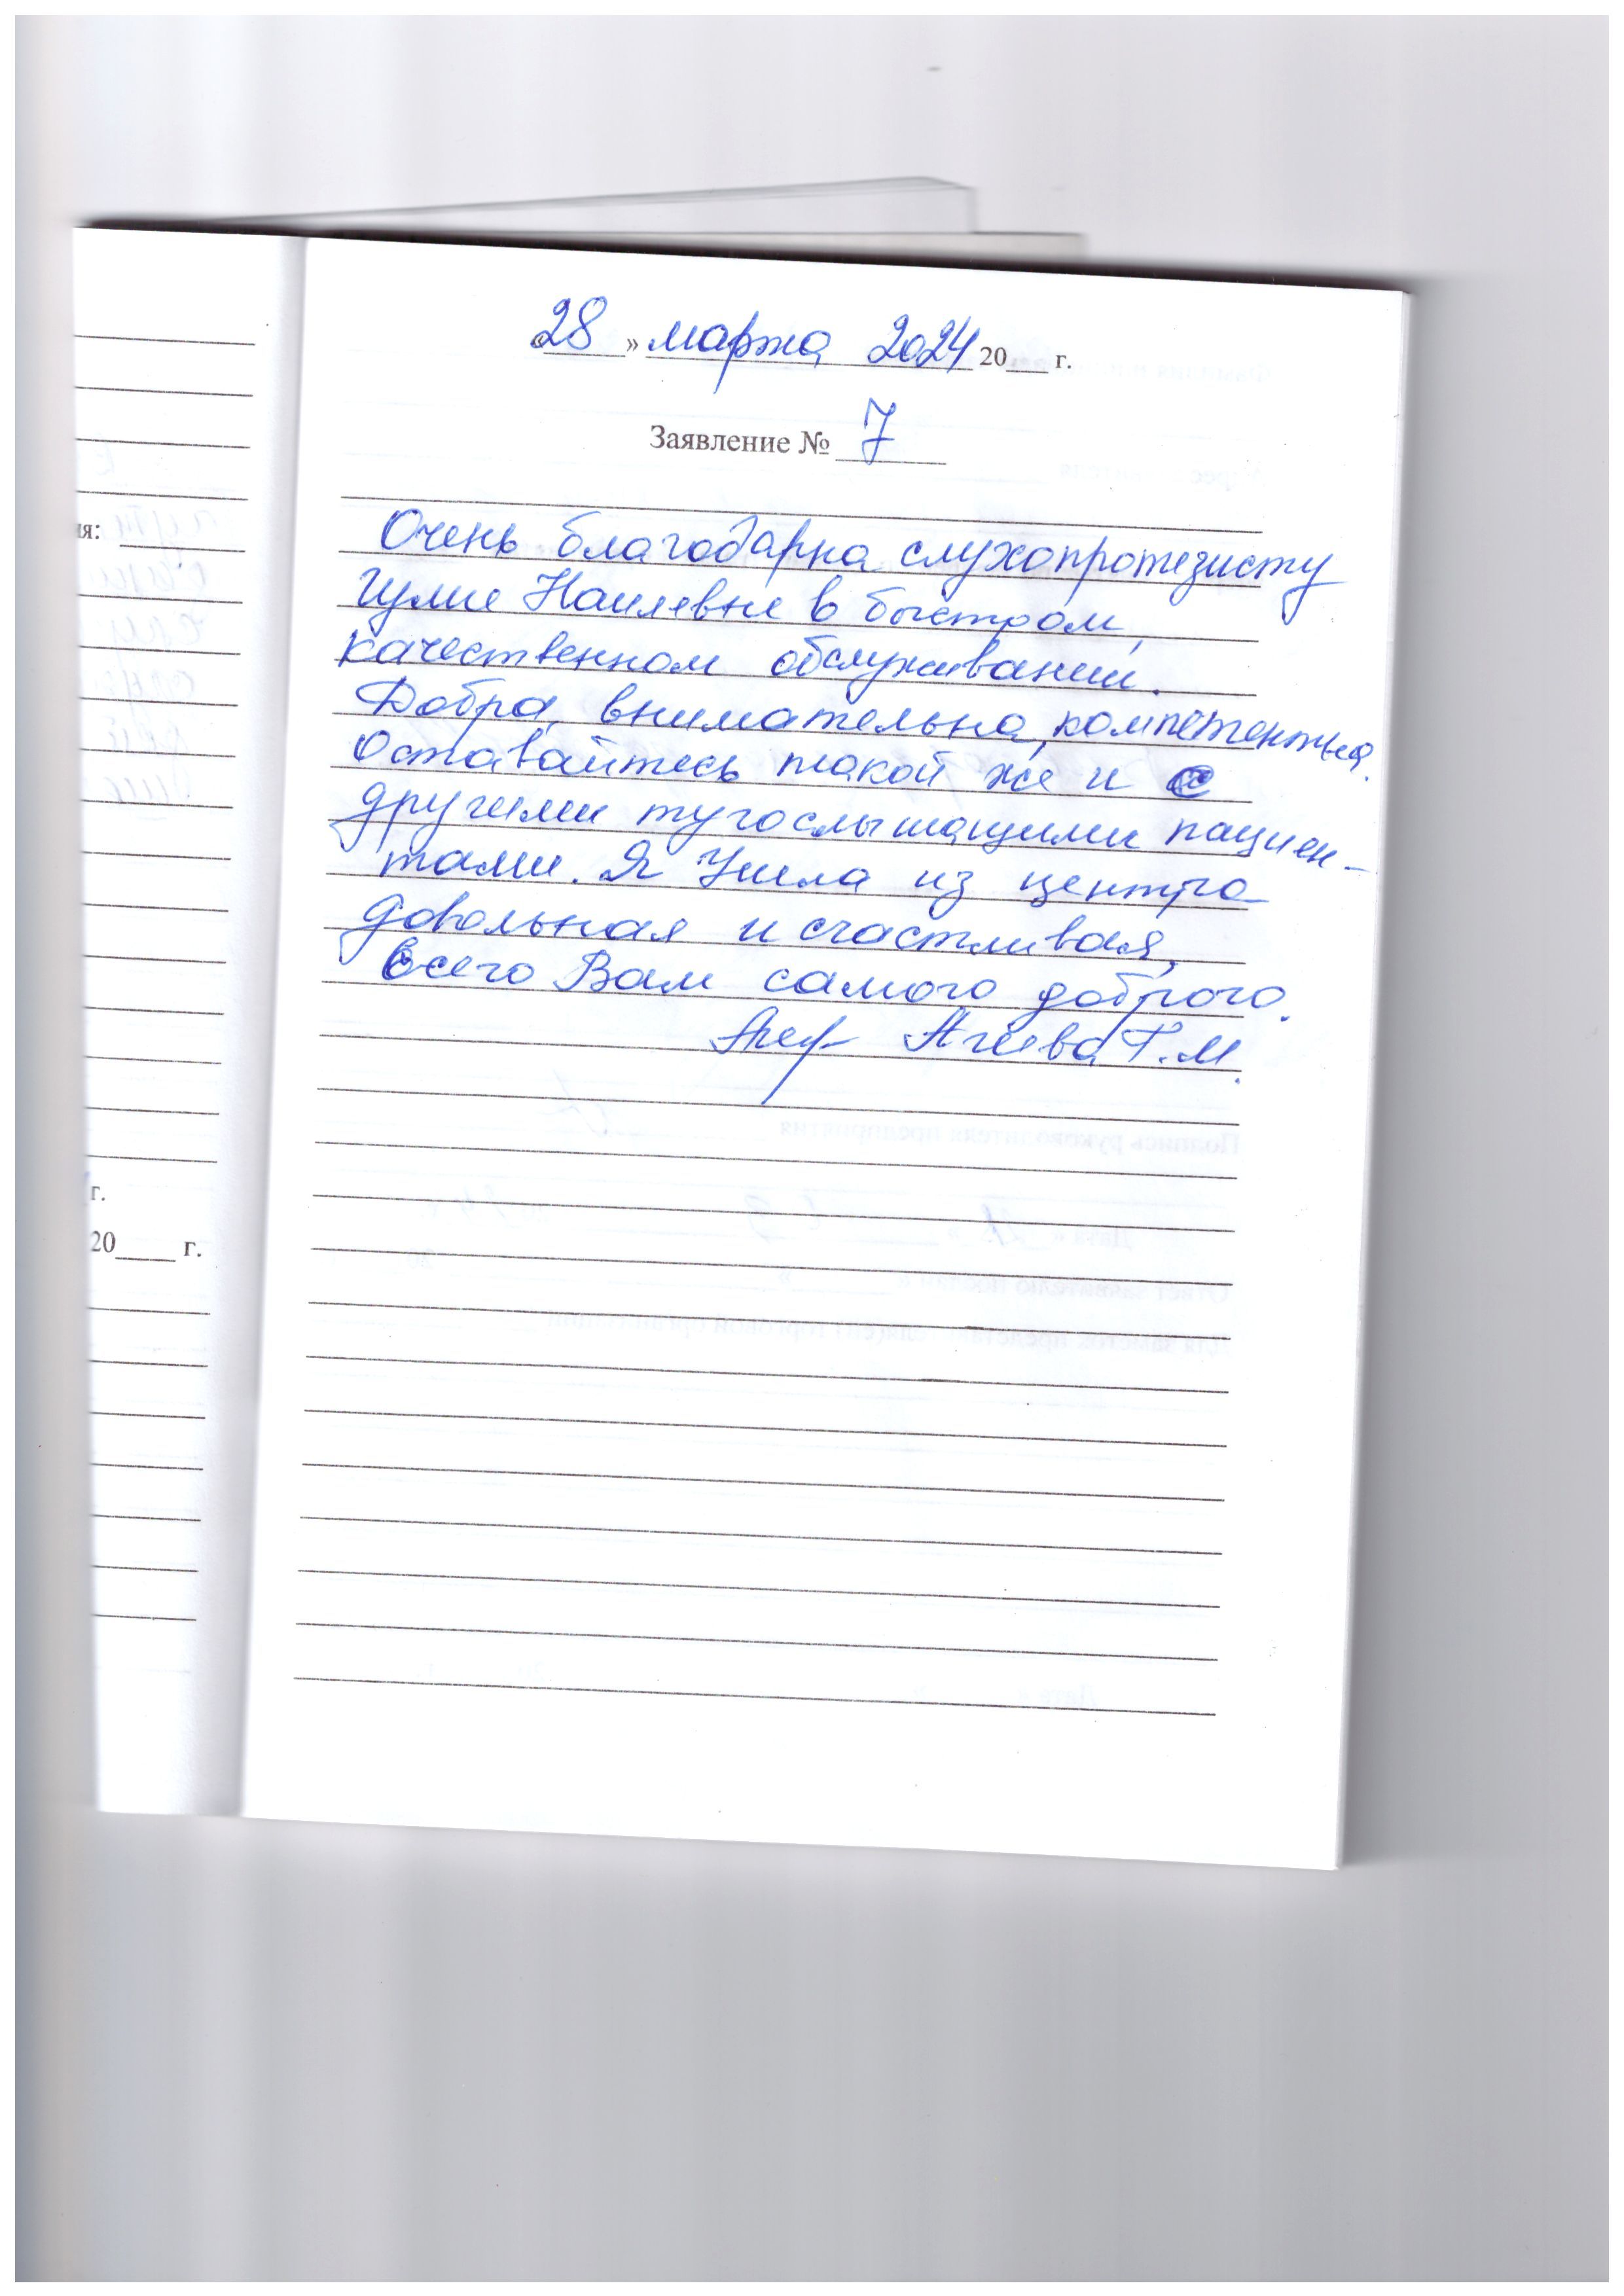 «28» марта 2024 20___ г.
Заявление № 7
Очень благодарна слухопротезисту
Гулие Наилевне в быстром,
качественном обслуживании.
Добра, внимательна, компетентна.
Оставайтесь такой же и с
другими тугослышащими пациен-
тами. Я Ушла из центра
довольная и счастливая,
Всего Вам самого доброго.
Агеева Г.М.
ия:
г.
20____ г.